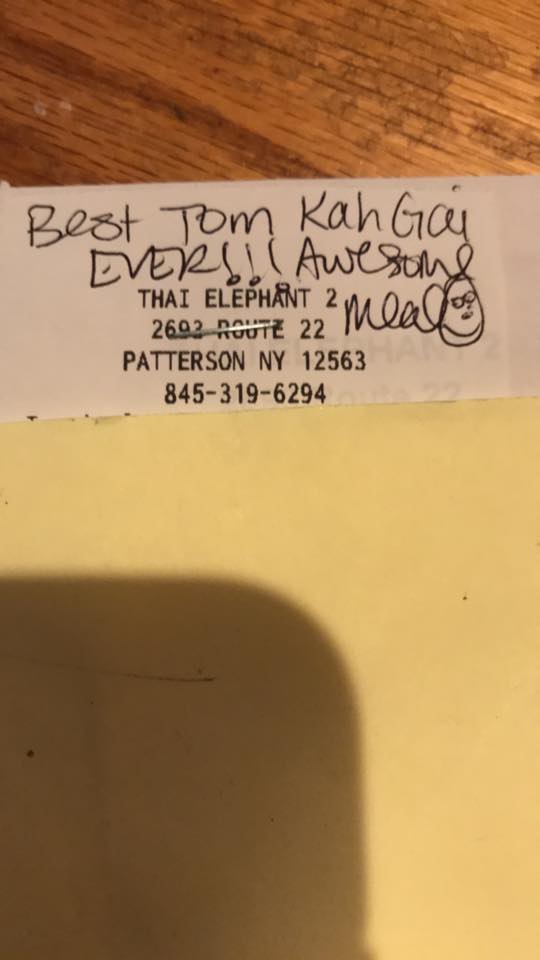 Best Tom Kah Gai
EVER!!! Awesome
Meal
THAI ELEPHANT 2
2693 ROUTE 22
PATTERSON NY 12563
845-319-6294